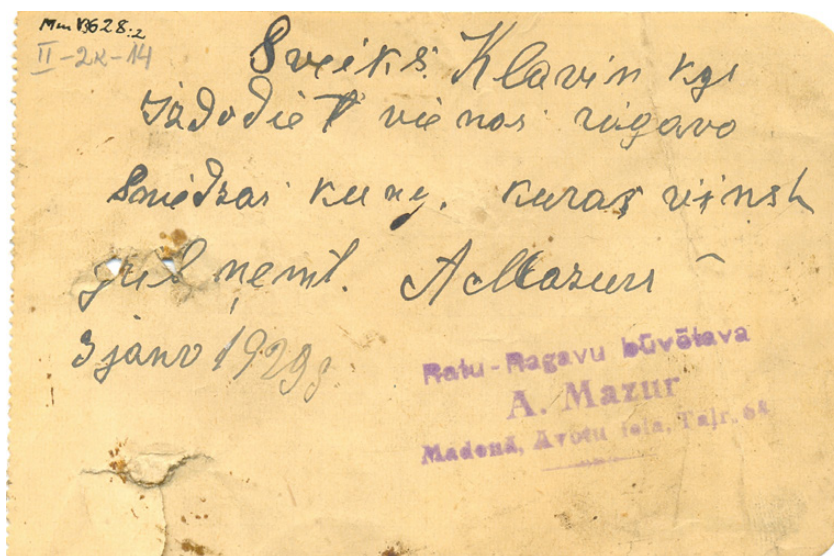 Mm 13628:2
II-2K-14
Sveiks. Klaviņ kgs
Jādodiet vienas ragavo
Smēdzas kung. kuras viņsh
grib ņemt. A Mazurs
3 janv 1929g.
Ratu-Ragavu būvētava
A. Mazur
Madonā, Avotu iela, Talr. 64